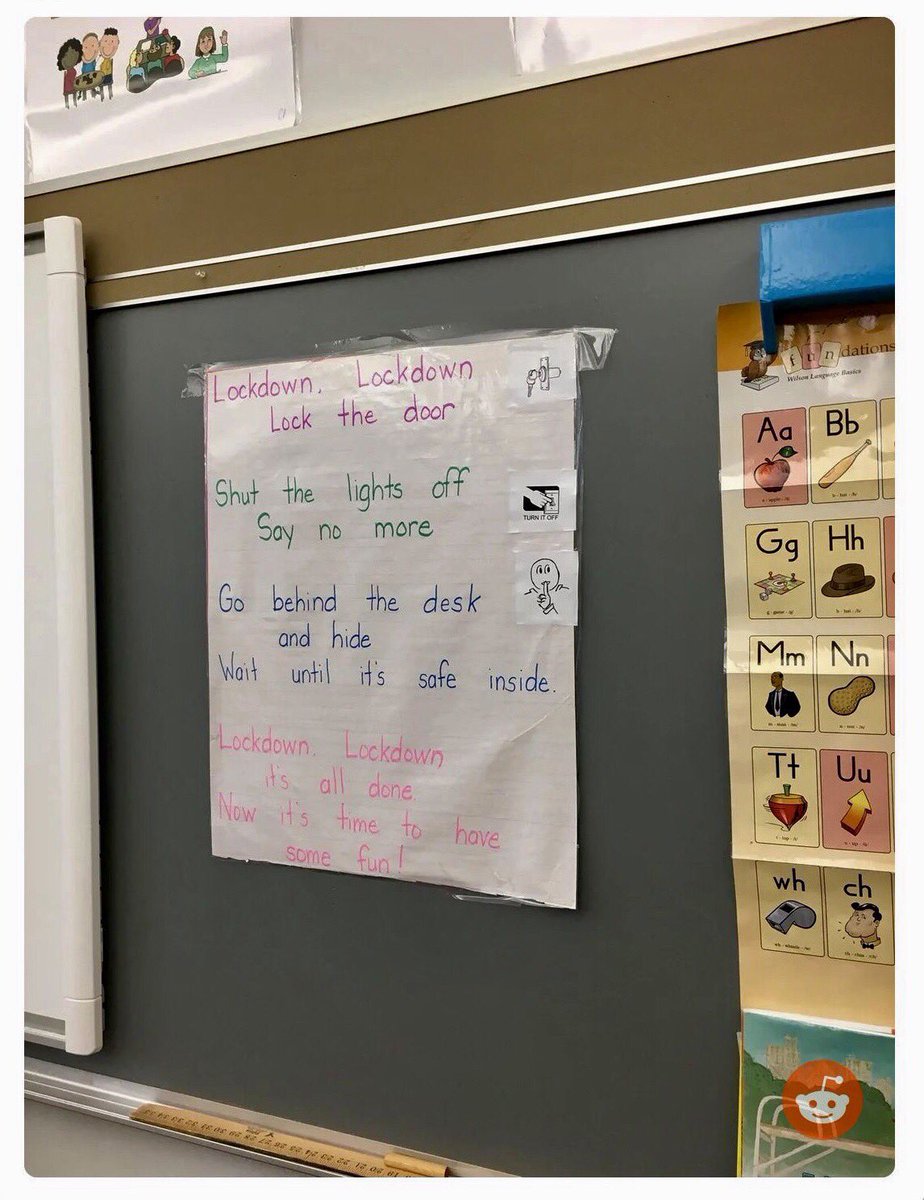 Lockdown, Lockdown
Lock the door
Shut the lights off
Say no more
Go behind the desk
and hide
Wait until it's safe inside.
Lockdown. Lockdown
it's all done.
Now it's time to have
some fun!
TURN IT OFF
fundations
Wilson Language Basics
Aa
Bb
Gg
Hh
Mm
Nn
Tt
Uu
wh
ch